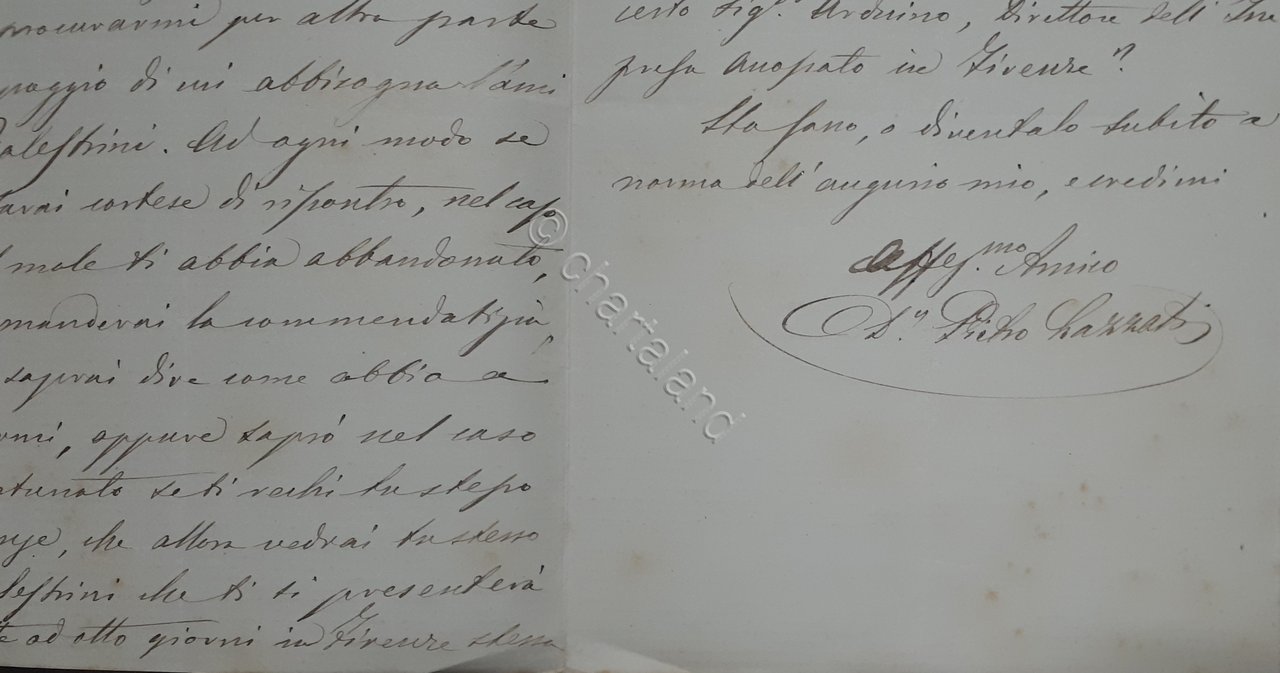 procurarmi per altra parte
poggio di cui abbisogna l'ami
alestrini. Ad ogni modo se
arai cortese di riscontro, nel caso
male ti abbia abbandonato,
manderai la commendatizia,
saprai dire come abbia a
rmi, oppure saprò nel caso
rtunato se ti rechi tu stesso
che allora vedrai tu stesso
lestrini che ti si presenterà
te ad otto giorni in Firenze stessa
certo Sig.r Arduino, Direttore dell' Im
presa Anonato in Firenze".
Sta sano, o diventalo subito a
norma dell' augurio mio, e credimi
Affez.mo Amico
D.r Pietro Lazzati
© chartaland